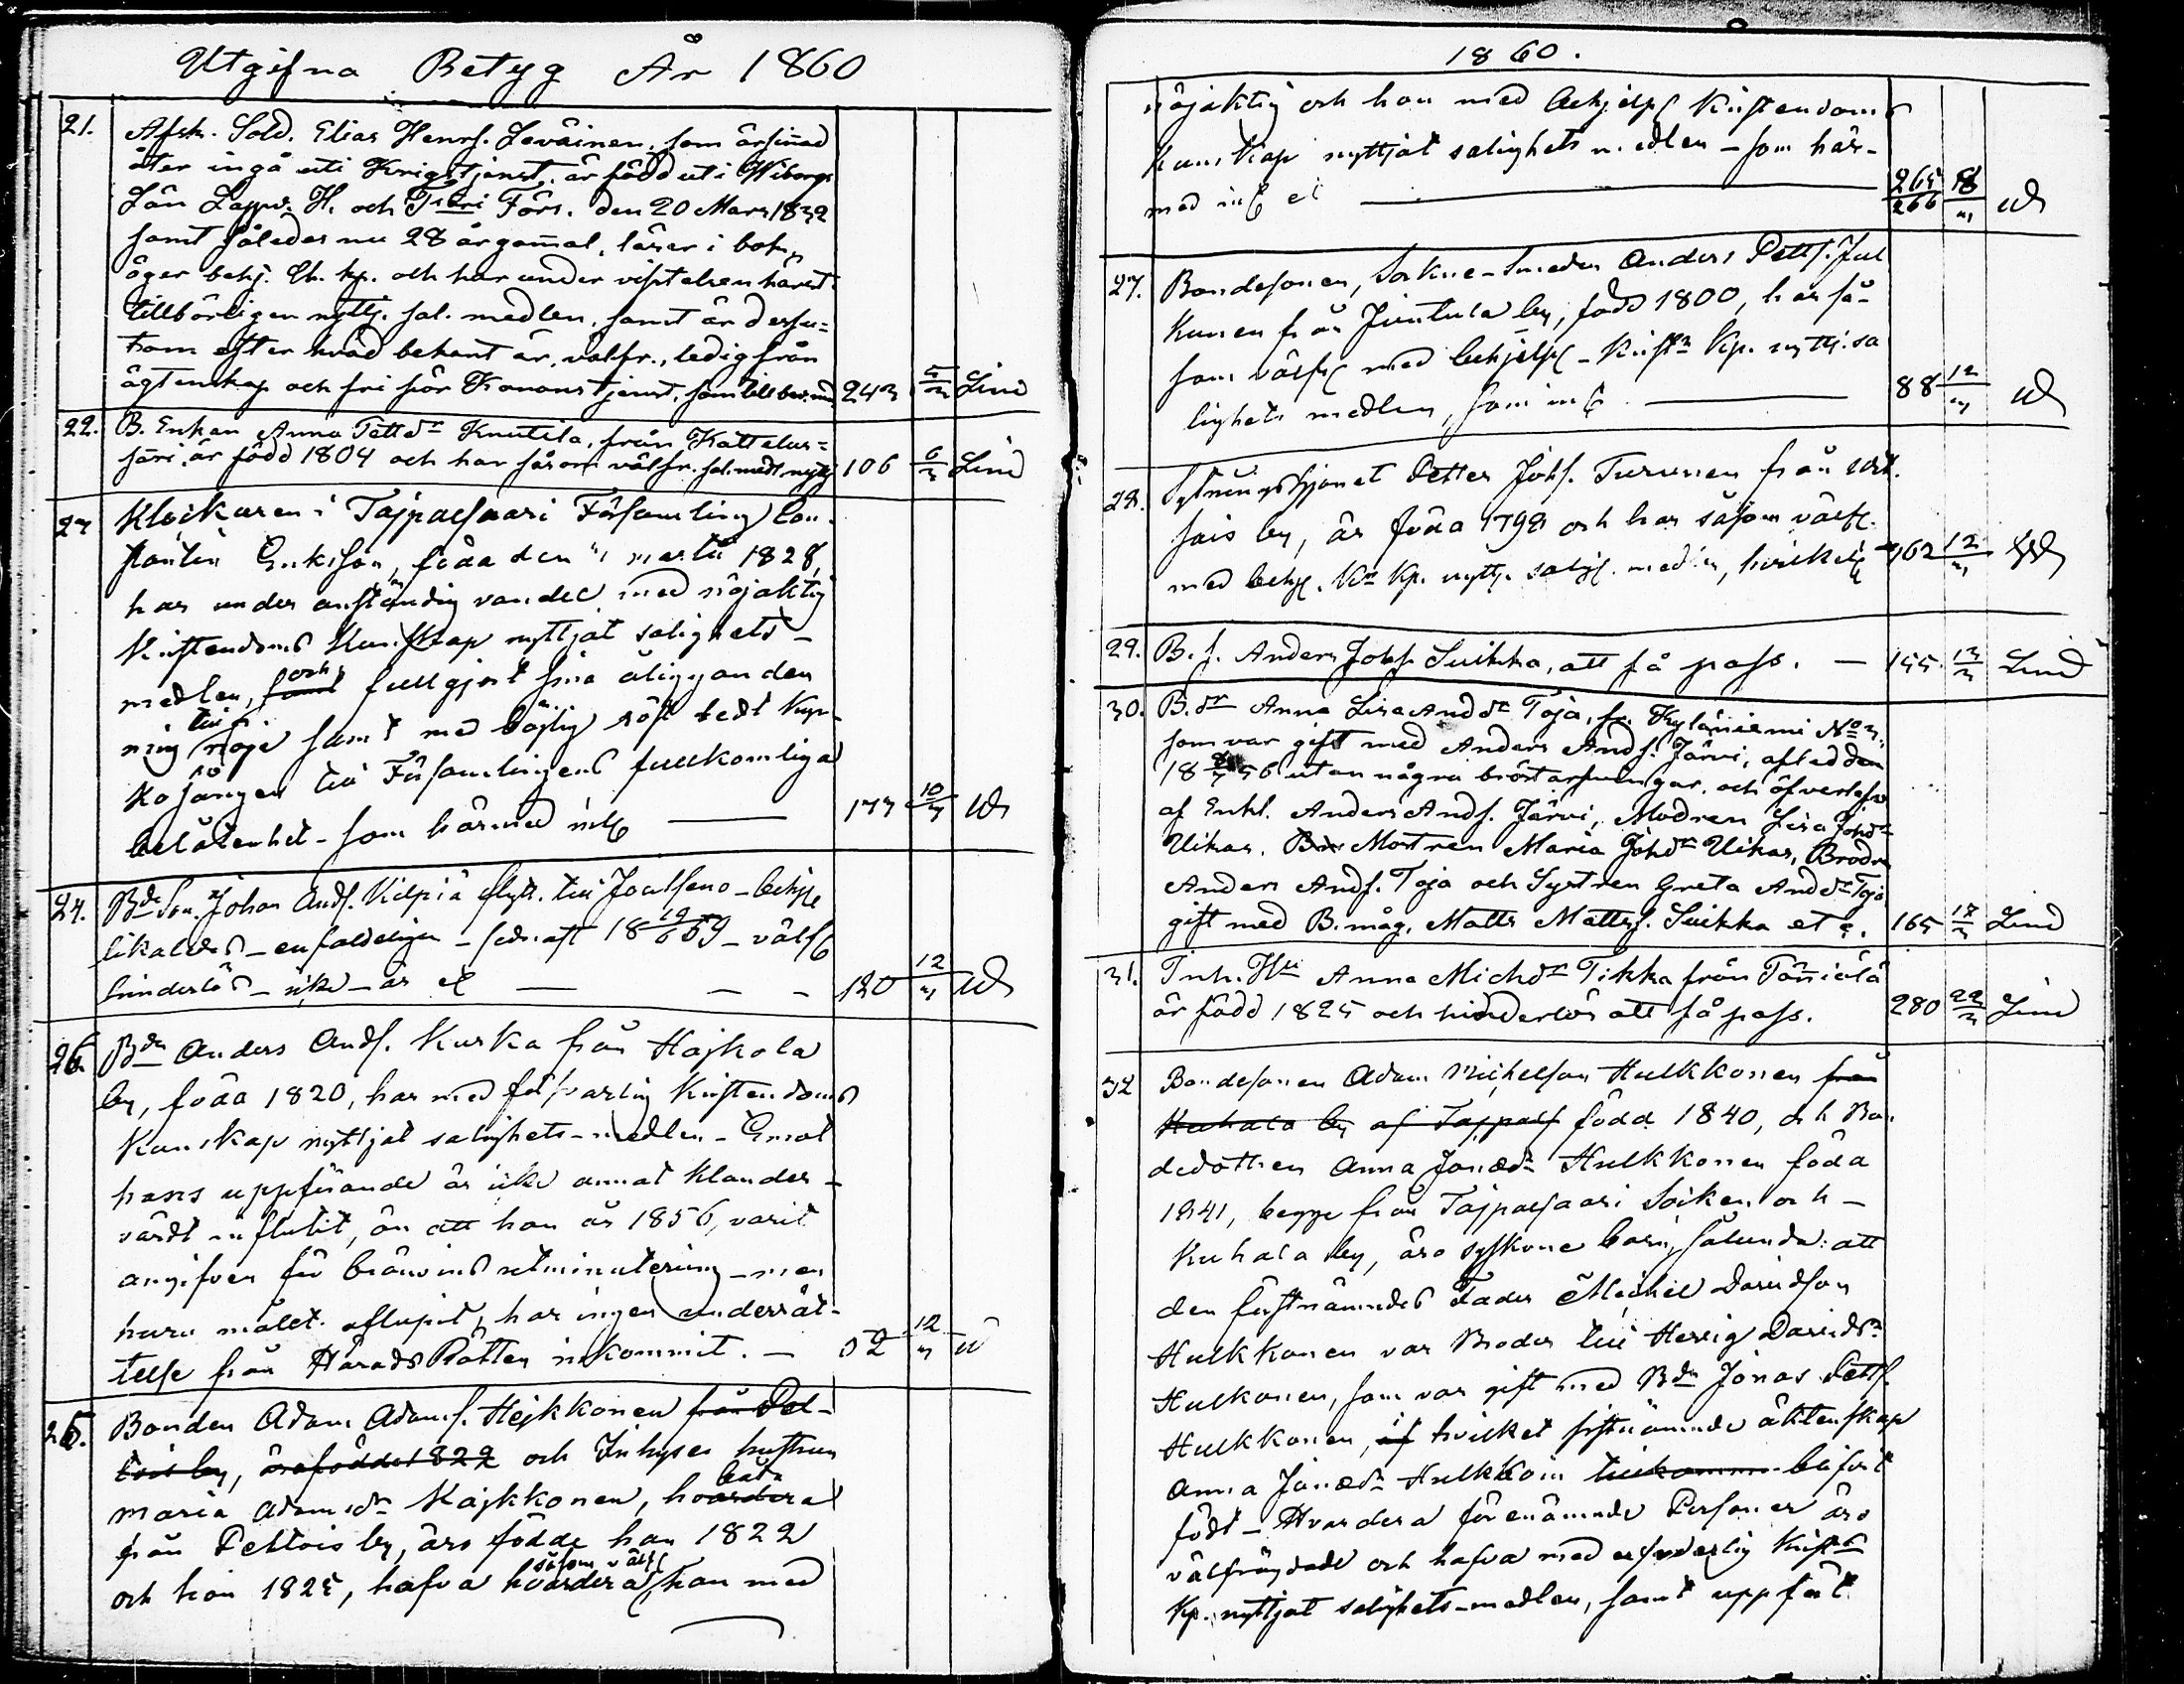 Utgifna Betyg År 1860
21. Afsk. Sold. Elias Henrs. Leväinen, som är sinnad
åter ingå uti Krigstjenst, är född uti Wiborgs
Län Lappv. H. och Förs. den 20 Mars 1832
samt således nu 28 år gammal, läser i bok,
äger behj. Ch. kp. och har under vistelsen härst.
tillbörligen nyttj. sal. medlen, samt är dessu-
tom efter hvad bekant är, välfr., ledig från
ägtenskap och fri för Kronans tjenst, som till bev. md. 243 5/3 Lind
22. B. Enkan Anna Pettdr Knutila, från Kattelus-
sari, är född 1804 och har såsom välfr. sal. medl. nyttj. 106 6/3 Lind
23 Klockaren i Tajpalsaari Församling Con-
stantin Eriksson, född den martii 1828,
har under anständig vandel med nöjaktig
Kristendoms Kunskap nyttjat salighets-
medlen, och fullgjort sina åligganden
till nöje samt med böjlig röst ledt Kyr-
kosången till Församlingens fullkomliga
belåtenhet - som härmed 177 10/3
24. Bde Son. Johan Ands. Kilpiä flytt. till Joutseno - behj.
likaledes - enfaldeligen - sednast 18 19/6 59 - välf.
hinderlös - icke - är 120 12/3
26. Bdn Anders Ands. Kurka från Hajkola
by, född 1820, har med försvarlig Kristendoms
Kunskap nyttjat salighets-medlen - Emot
hans uppförande är icke annat klander-
värdt influtit, än att han år 1856, varit
angifven för bränvins utminutering - men
huru målet aflupit, har ingen underrät-
telse från HäradsRätten inkommit. - 52 12/3
25. Bonden Adam Adams. Hejkkonen från Pel-
tois by, äro födde 1822 och Inhyses hustrun
Maria Adamsdr Kajkkonen, båda hvardera
från Peltois by, äro födde han 1822
och hon 1825, hafva såsom välf. hvardera, han med
1860.
nöjaktig och hon med behjelpl. Kristendoms
kunskap nyttjat salighets medlen - som här-
med 265/266 18/3
27. Bondesonen, Sockne-Smeden Anders Petts. Jul
kunen från Jüntula by, född 1800, har så-
som välf. med behjelpl. - Kristns Kp. nyttj. sa
lighets medlen, som 88 12/3
28. Sytningshjonet Petter Johs. Turunen från
sais by, är född 1798 och har såsom välf.
med behj. Kp. nyttj. salig. medlen, 162 12/3
29. B. s. Anders Johs. Suikka, att få pass. - 155 13/3 Lind
30. B.dr Anna Lisa Anddr Toja, fr. Kyläniemi No 3,
som var gift med Anders Ands. Järvi, afled den
18 56 utan några bröstarfvingar, och öfverlefves
af Enkl. Anders Ands. Järvi, Modren Lisa Johdr
Uikas. Mostren Maria Johdr Uikas, Brodren
Anders Ands. Toja och Systren Greta Anddr Toja
gift med B. måg. Matts Mattss. Suikka et c. 165 17/3 Lind
31. Inh. Hu Anna Michdr Tikka från Tönniälä
är född 1825 och hinderlös att få pass. 280 22/3 Lind
32 Bondesonen Adam Michelson Hulkkonen från
Kuhala by af Tajpals född 1840, och Bon
dedottren Anna Jonædr Hulkkonen född
1841, begge från Tajpalsaari Socken och -
Kuhala by, äro syskone barn, sålunda: att
den förstnämndes Fader Michel Davidson
Hulkkonen var Broder till Hedvig Davidsdr
Hulkonen, som var gift med Bdn Jonas Petts.
Hulkkonen, af hvilket sistnämnde äktenskap
Anna Jonædr Hulkkoin blifvit
född - Hvardera förenämnde Personer äro
välfrägdade och hafva med erforderlig Krist.
Kp. nyttjat salighets-medlen, samt uppfört